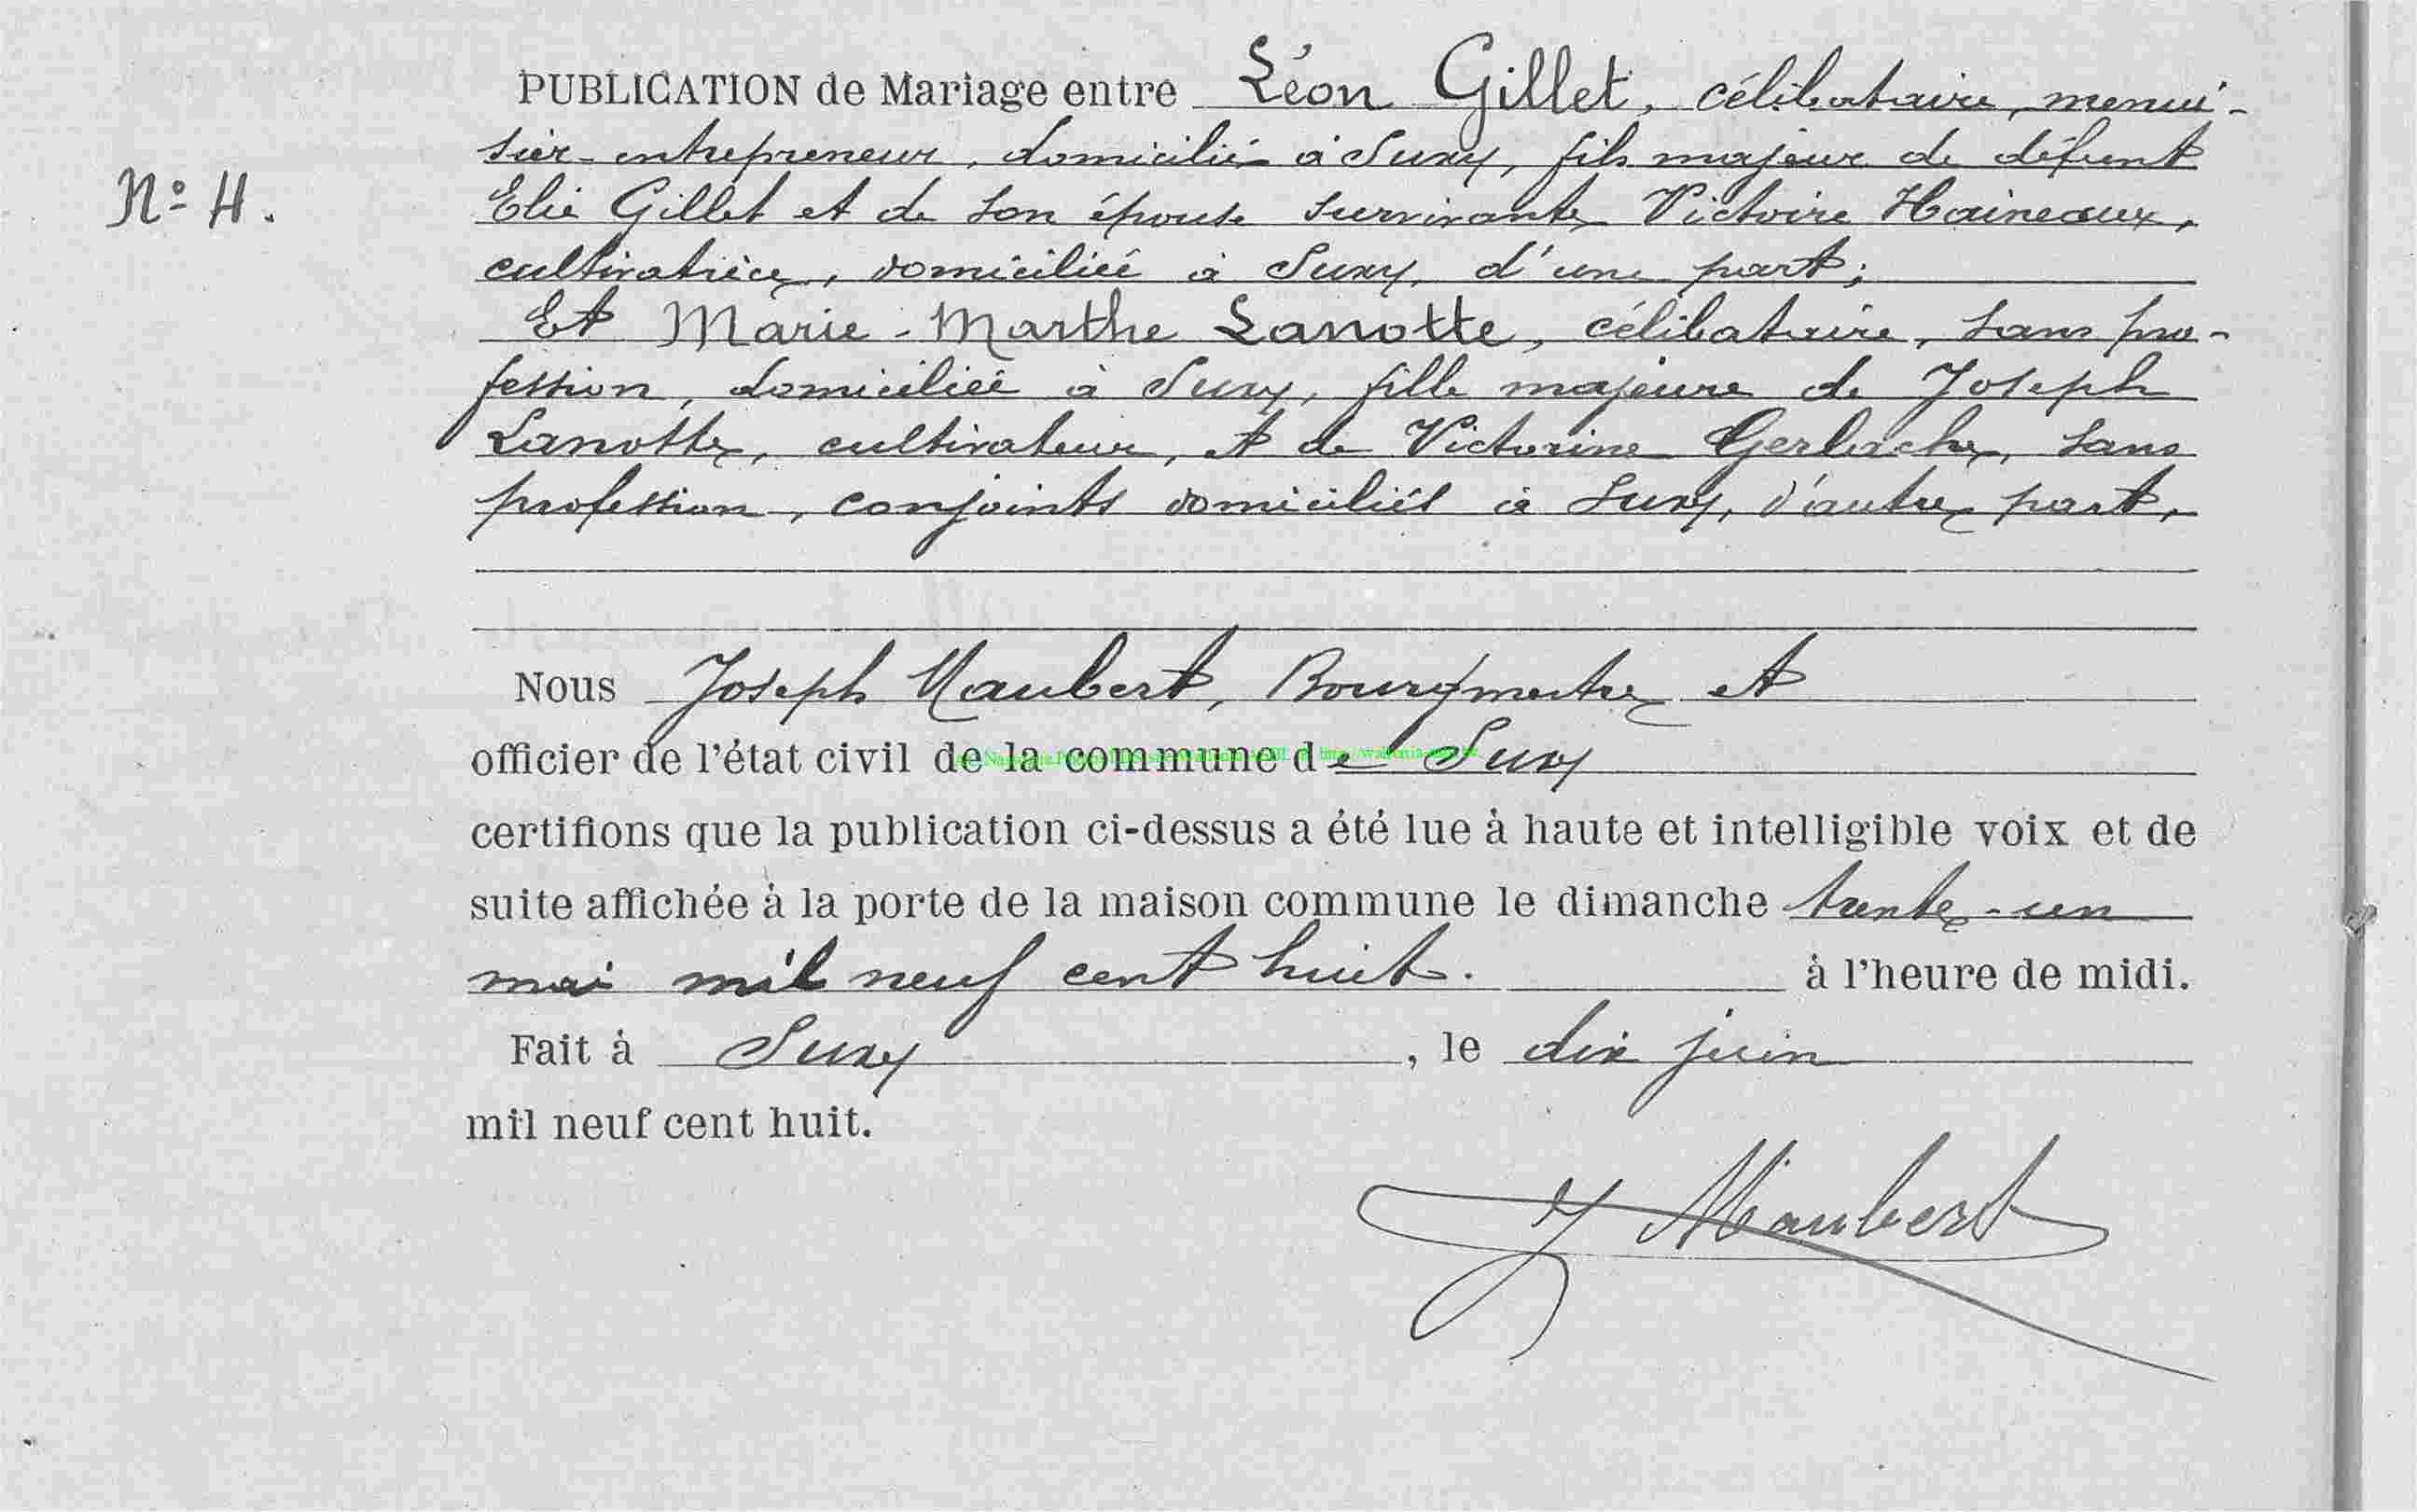 PUBLICATION de Mariage entre Léon Gillet, célibataire, menui-
sier-entrepreneur, domicilié à Suxy, fils majeur de défunt
N° 4. Elie Gillet et de son épouse survivante Victoire Haineaux,
cultivatrice, domiciliée à Suxy, d'une part;
Et Marie-Marthe Lanotte, célibataire, sans pro-
fession, domiciliée à Suxy, fille majeure de Joseph
Lanotte, cultivateur, et de Victorine Gerbache, sans
profession, conjoints domiciliés à Suxy, d'autre part,
Nous Joseph Maubert, Bourgmestre et
officier de l'état civil de la commune de Suxy
certifions que la publication ci-dessus a été lue à haute et intelligible voix et de
suite affichée à la porte de la maison commune le dimanche trente-un
mai mil neuf cent huit. à l'heure de midi.
Fait à Suxy, le dix juin
mil neuf cent huit.
J Maubert